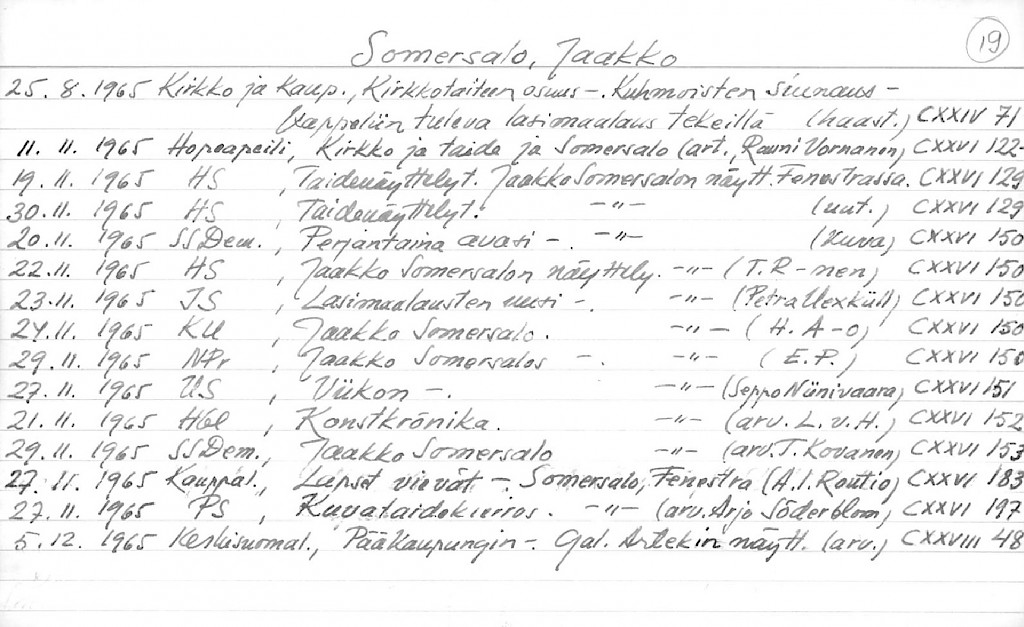 19
Somersalo, Jaakko
25. 8. 1965 Kirkko ja Kaup., Kirkkotaiteen osuus -. Kuhmoisten siunaus-
kappeliin tuleva lasimaalaus tekeillä (haast.) CXXIV 71
11. 11. 1965 Hopeapeili, Kirkko ja taide ja Somersalo (art., Rauni Vornanen) CXXVI 122-
19. 11. 1965 HS , Taidenäyttelyt. Jaakko Somersalon näytt. Fenestrassa. CXXVI 129
30. 11. 1965 HS , Taidenäyttelyt. -"- (uut.) CXXVI 129
20. 11. 1965 SSDem. , Perjantaina avasi -. -"- (kuva) CXXVI 150
22. 11. 1965 HS , Jaakko Somersalon näyttely. -"- (T.R-nen) CXXVI 150
23. 11. 1965 IS , Lasimaalausten uusi - -"- (Petra Uexküll) CXXVI 150
24. 11. 1965 KU , Jaakko Somersalo. -"- (H. A-o) CXXVI 150
29. 11. 1965 NPr , Jaakko Somersalos -. -"- (E.P.) CXXVI 150
27. 11. 1965 US , Viikon -. -"- (Seppo Niinivaara) CXXVI 151
21. 11. 1965 Hbl , Konstkrönika. -"- (arv. L.v.H.) CXXVI 152
29. 11. 1965 SSDem., Jaakko Somersalo -"- (arv. T. Kovanen) CXXVI 153
27. 11. 1965 Kauppal., Lapset vievät - Somersalo, Fenestra (A.I. Routio) CXXVI 183
27. 11. 1965 PS , Kuvataidekierros. -"- (arv. Arjo Söderblom) CXXVI 197
5. 12. 1965 Keskisuomal., Pääkaupungin -. Gal. Artekin näytt. (arv.) CXXVIII 48